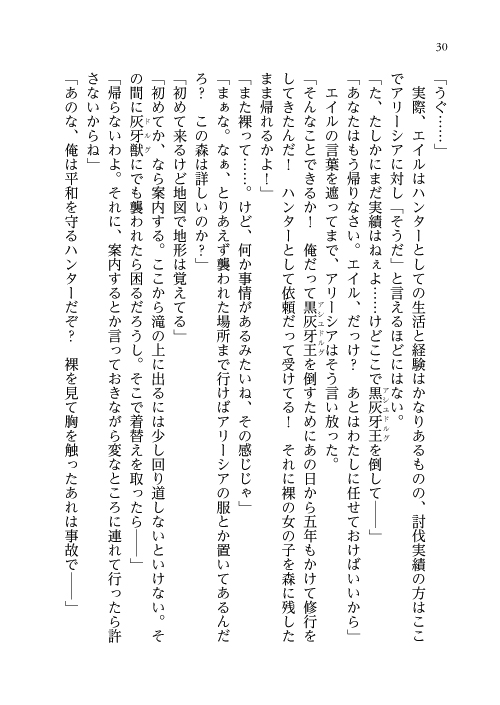 30
「うぐ……」
　実際、エイルはハンターとしての生活と経験はかなりあるものの、討伐実績の方はここ
でアリーシアに対し「そうだ」と言えるほどにはない。
「た、たしかにまだ実績はねぇよ……けどここで黒灰牙王を倒して――」
アシュドルグ
「あなたはもう帰りなさい。エイル、だっけ？　あとはわたしに任せておけばいいから」
　エイルの言葉を遮ってまで、アリーシアはそう言い放った。
「そんなことできるか！　俺だって黒灰牙王を倒すためにあの日から五年もかけて修行を
アシュドルグ
してきたんだ！　ハンターとして依頼だって受けてる！　それに裸の女の子を森に残した
まま帰れるかよ！」
「また裸って……。けど、何か事情があるみたいね、その感じじゃ」
「まぁな。なぁ、とりあえず襲われた場所まで行けばアリーシアの服とか置いてあるんだ
ろ？　この森は詳しいのか？」
「初めて来るけど地図で地形は覚えてる」
「初めてか、なら案内する。ここから滝の上に出るには少し回り道しないといけない。そ
の間に灰牙獣にでも襲われたら困るだろうし。そこで着替えを取ったら――」
ドルグ
「帰らないわよ。それに、案内するとか言っておきながら変なところに連れて行ったら許
さないからね」
「あのな、俺は平和を守るハンターだぞ？　裸を見て胸を触ったあれは事故で――」